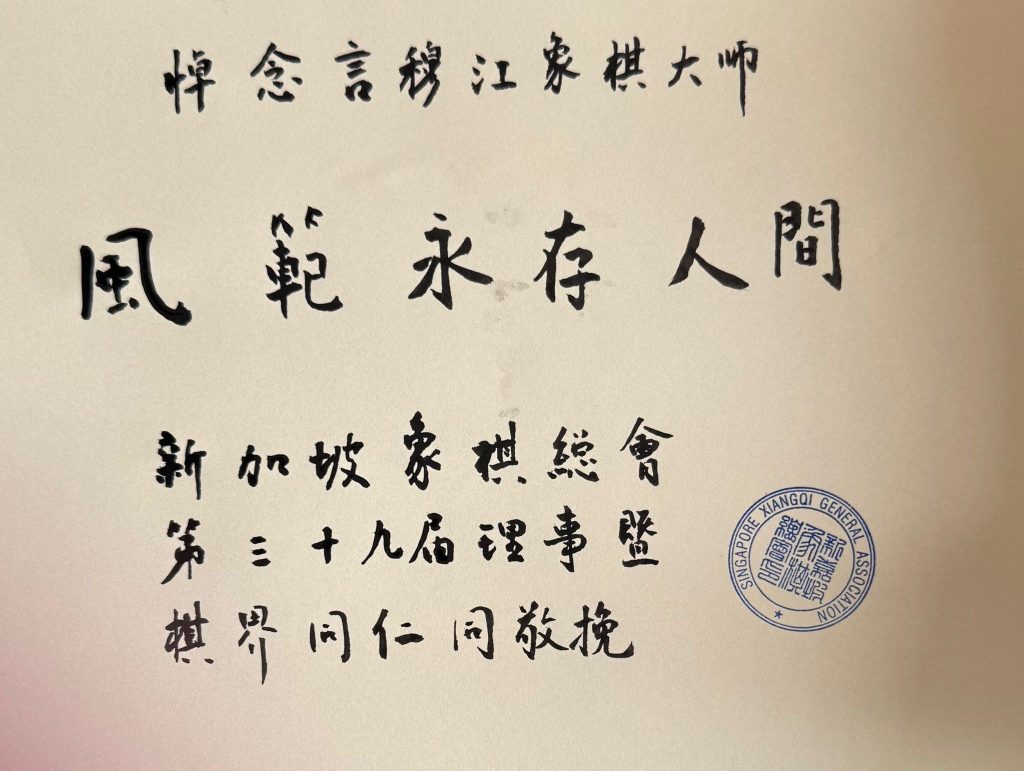 悼念言穆江象棋大师
風範永存人間
新加坡象棋総會
第三十九届理事暨
棋界同仁同敬挽
SINGAPORE XIANGQI GENERAL ASSOCIATION